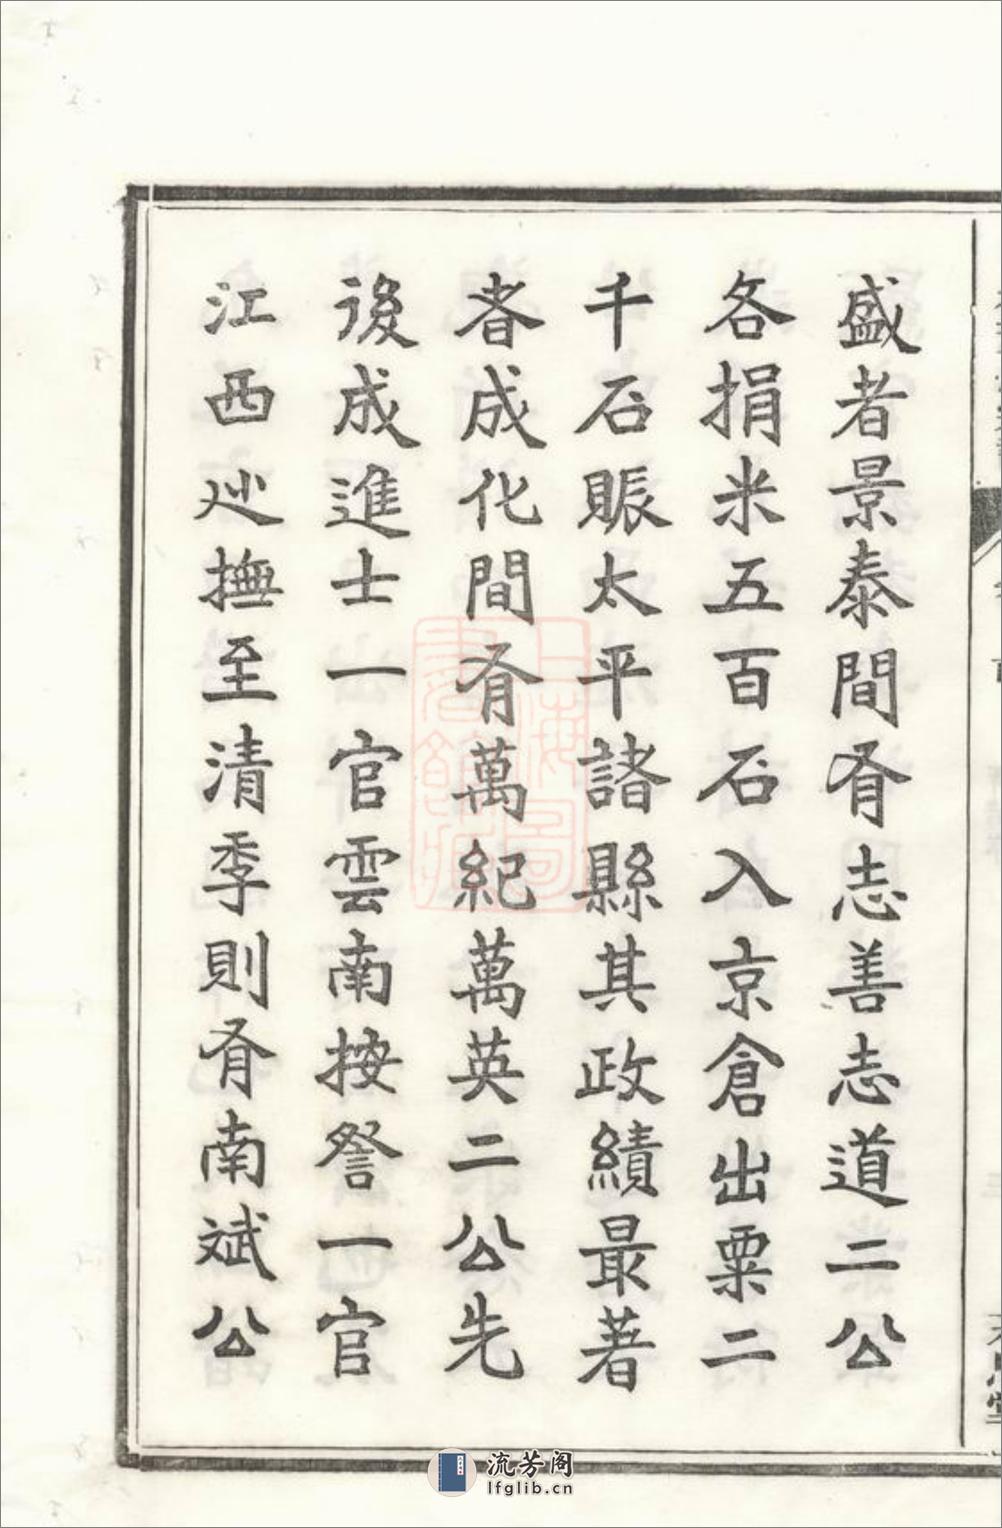 盛者景泰間有志善志道二公
各捐米五百石入京倉出粟二
千石賑太平諸縣其政績最著
者成化間有萬紀萬英二公先
後成進士一官雲南按詧一官
江西巡撫至清季則有南斌公
上海圖書館藏
流芳阁
lfglib.cn